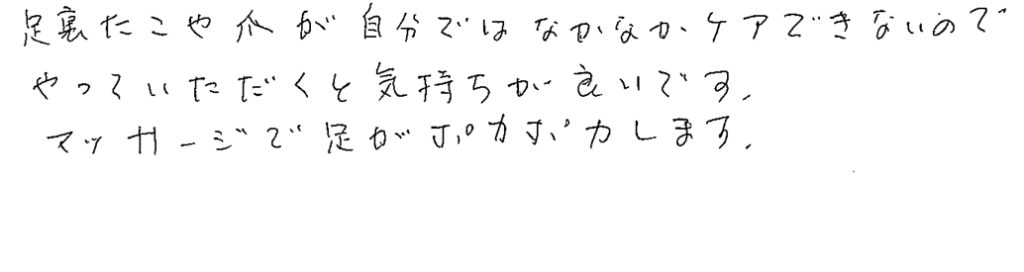 足裏たこや爪が自分ではなかなかケアできないので
やっていただくと気持ちが良いです。
マッサージで足がポカポカします。